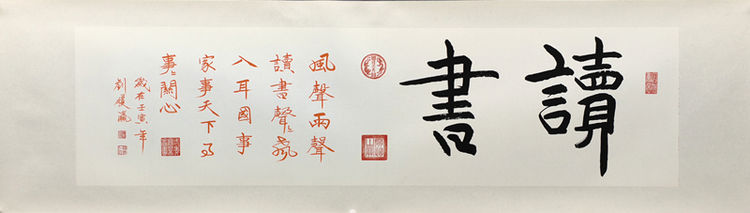 讀書
風聲雨聲
讀書聲〻聲
入耳國事
家事天下事
事〻關心
歲在壬寅年
劉